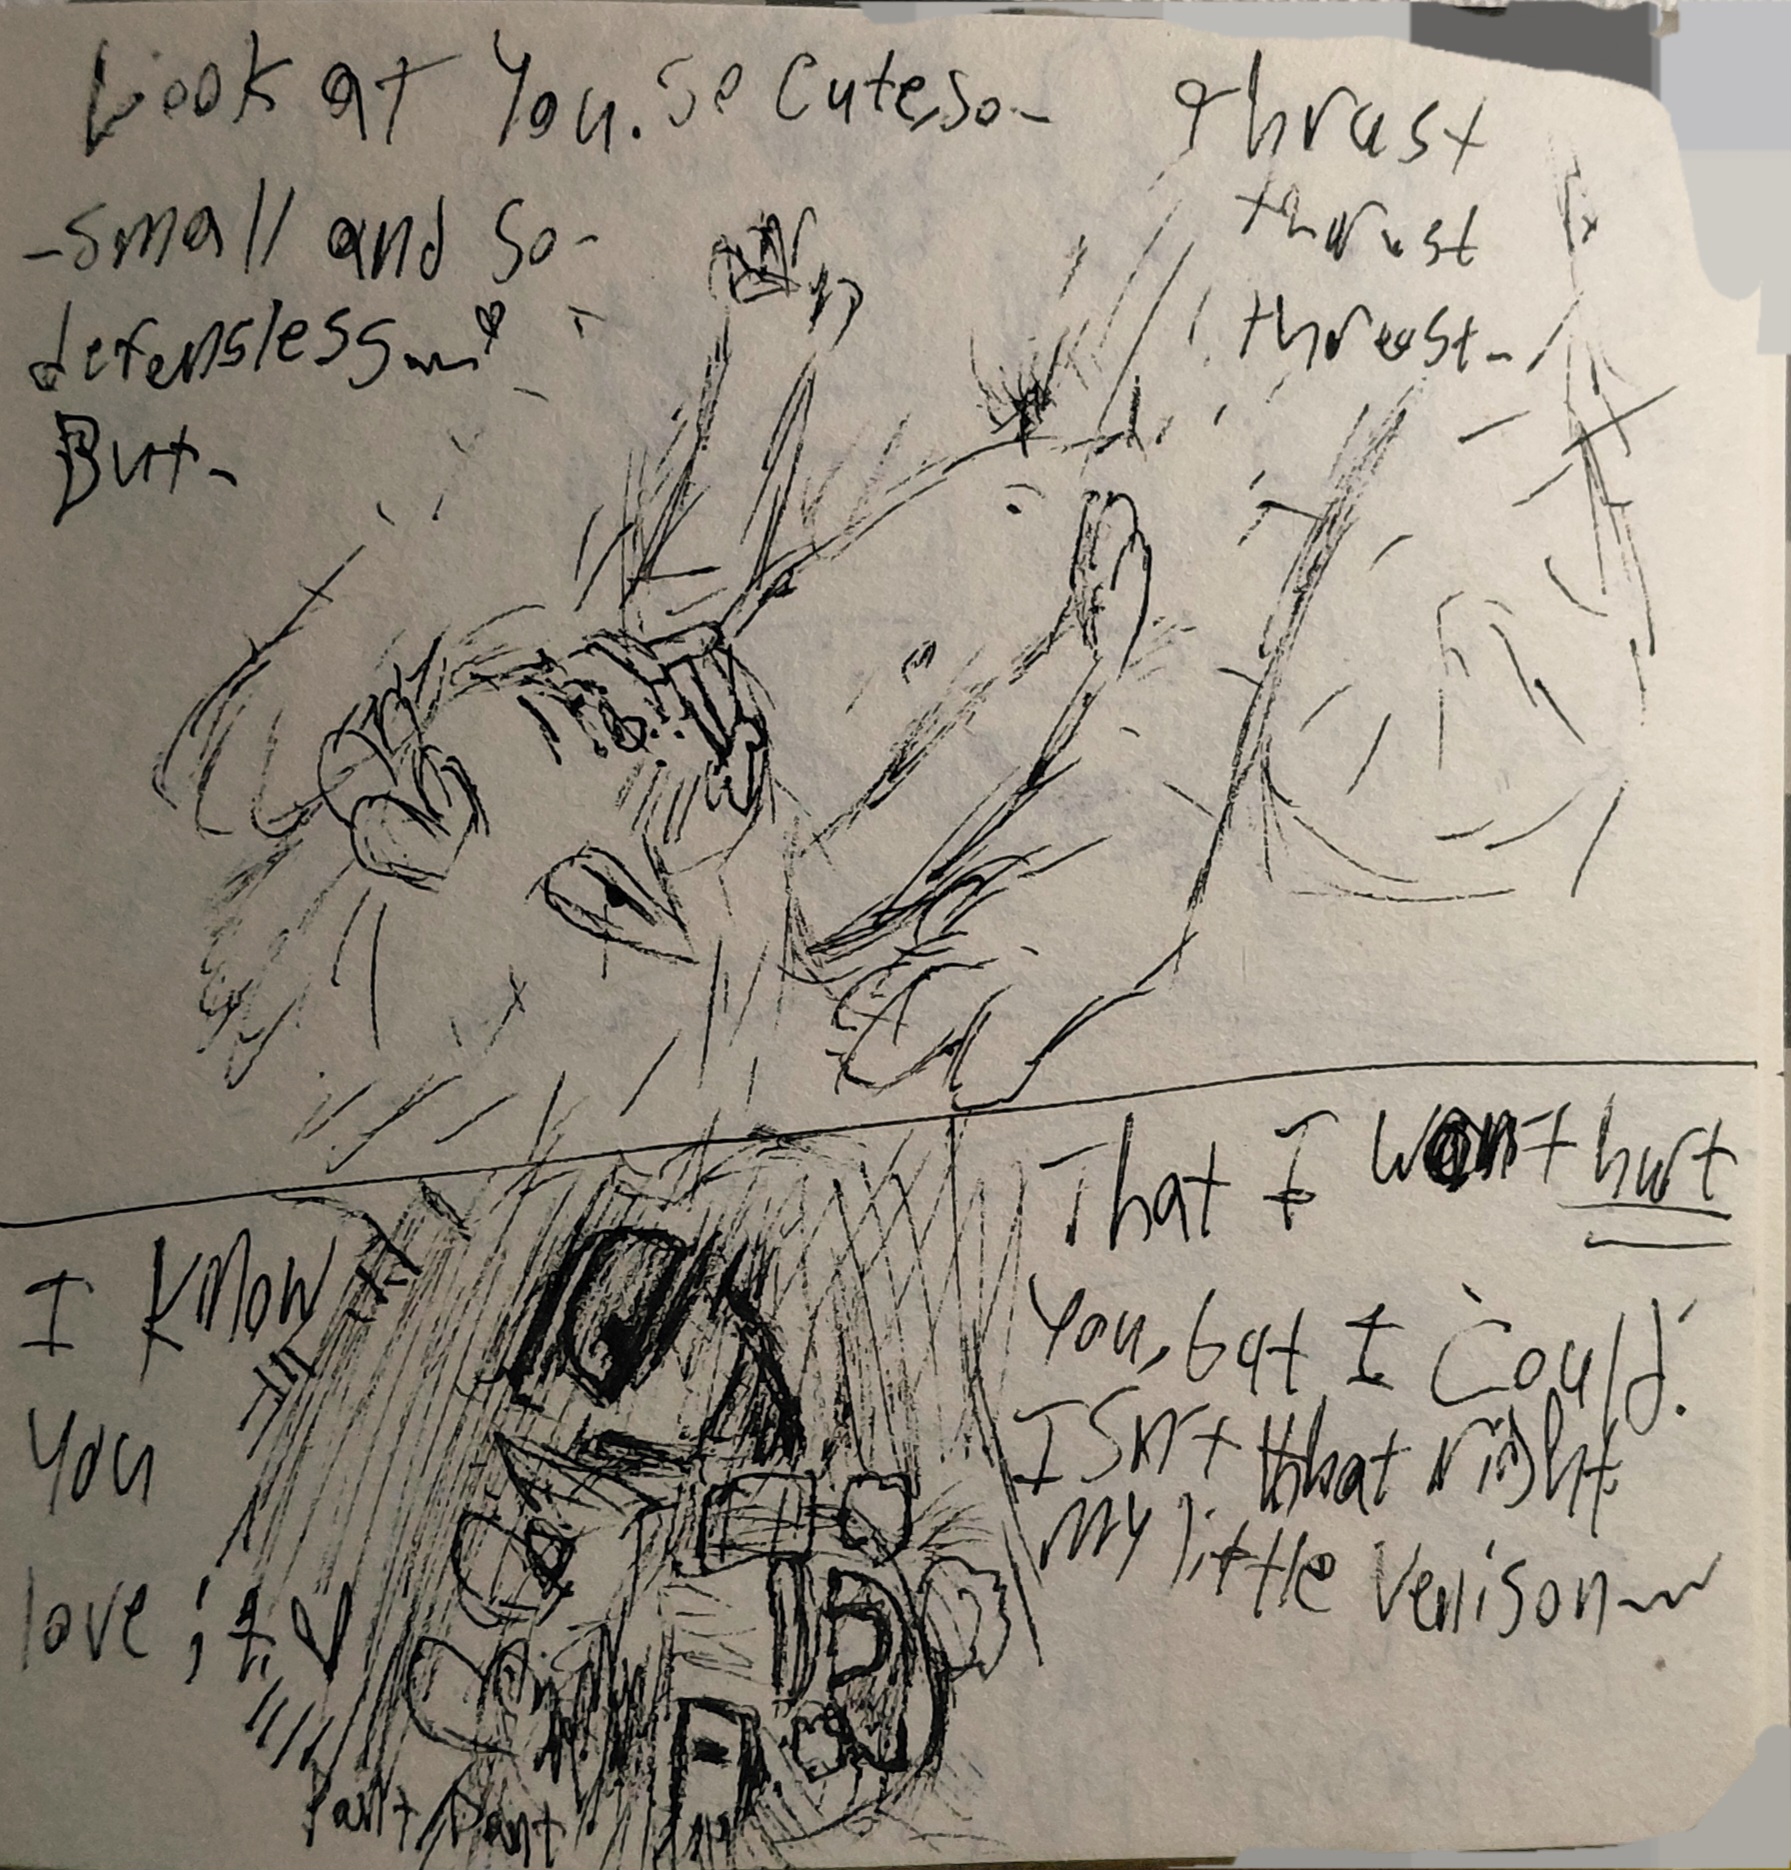 Look at you. so cute, so-
-small and so-
defensless~♥
But-
thrust
thrust
thrust-
I know
you
love it ♥
Pant Pant
That I won't hurt
you, but I 'could'.
Isn't that right
my little venison~